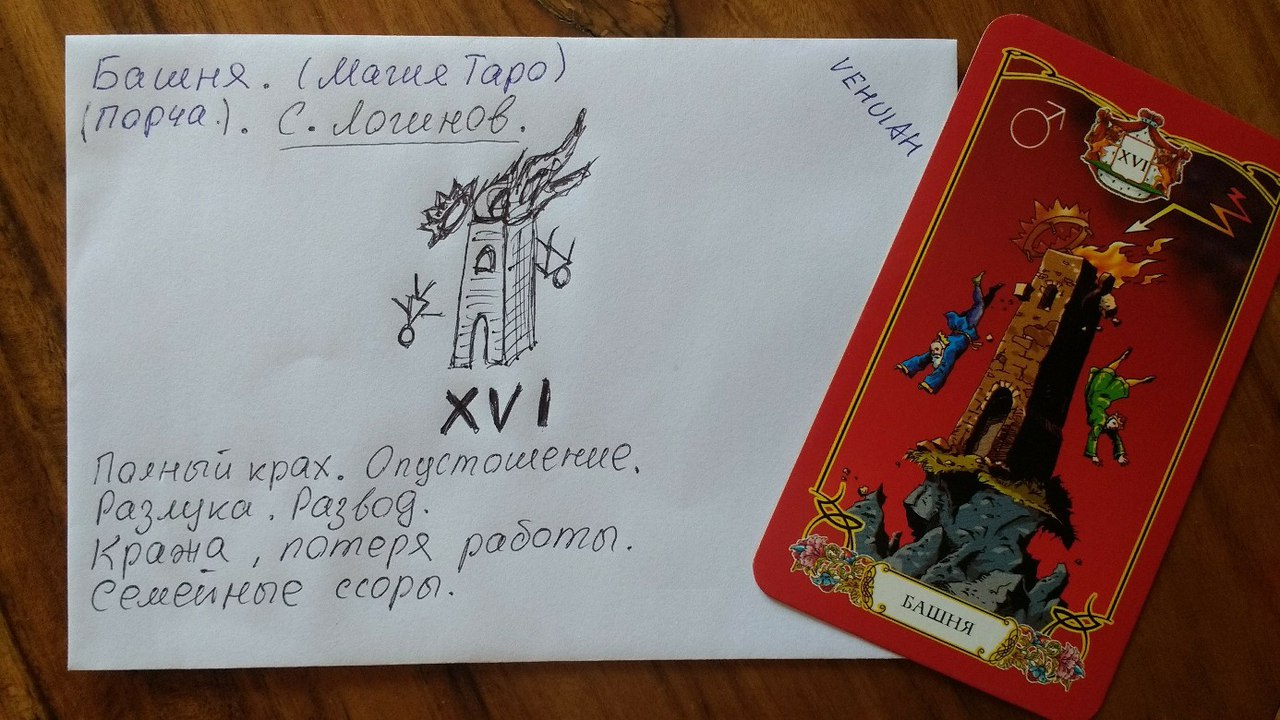 Башня. (Магия Таро)
(порча.). С. Логинов.
VEHUIAH
XVI
Полный крах. Опустошение.
Разлука. Развод.
Кража, потеря работы.
Семейные ссоры.
XVI
БАШНЯ